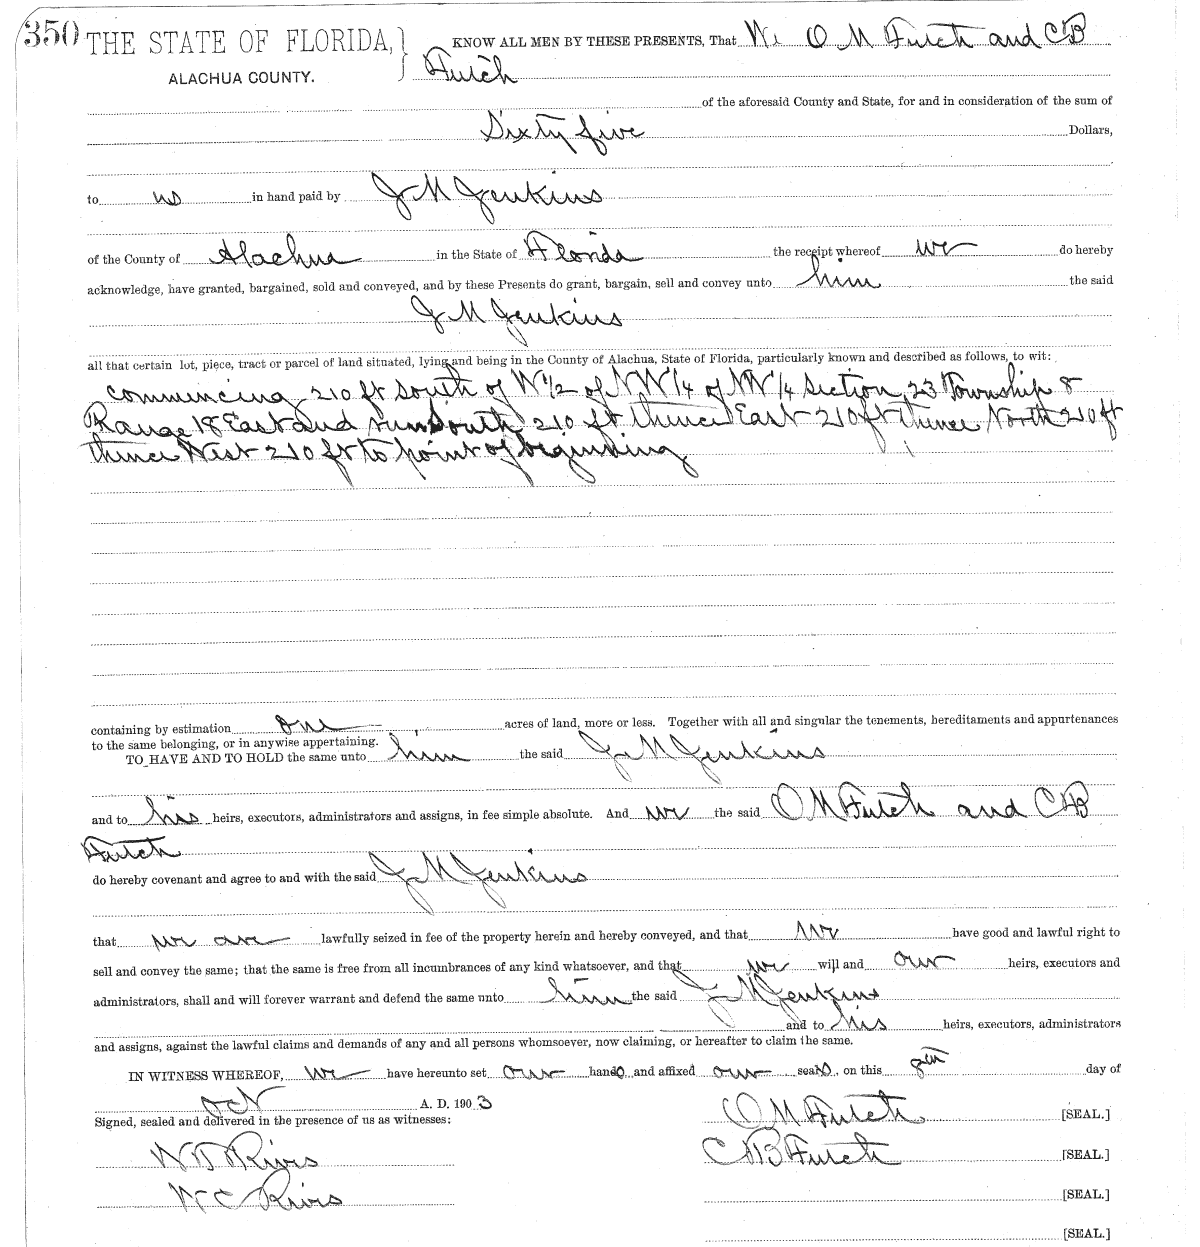 350 THE STATE OF FLORIDA, } KNOW ALL MEN BY THESE PRESENTS, That We O M Futch and C B
ALACHUA COUNTY. Futch
of the aforesaid County and State, for and in consideration of the sum of
Sixty five Dollars,
to us in hand paid by J M Jenkins
of the County of Alachua in the State of Florida the receipt whereof we do hereby
acknowledge, have granted, bargained, sold and conveyed, and by these Presents do grant, bargain, sell and convey unto him the said
J M Jenkins
all that certain lot, piece, tract or parcel of land situated, lying and being in the County of Alachua, State of Florida, particularly known and described as follows, to wit:
Commencing 210 ft South of W 1/2 of NW 1/4 of NW 1/4 Section 23 Township 8
Range 18 East and run South 210 ft thence East 210 ft thence North 210 ft
thence West 210 ft to point of beginning
containing by estimation one acres of land, more or less. Together with all and singular the tenements, hereditaments and appurtenances
to the same belonging, or in anywise appertaining.
TO HAVE AND TO HOLD the same unto him the said J M Jenkins
and to his heirs, executors, administrators and assigns, in fee simple absolute. And we the said O M Futch and C B
Futch
do hereby covenant and agree to and with the said J M Jenkins
that we are lawfully seized in fee of the property herein and hereby conveyed, and that we have good and lawful right to
sell and convey the same; that the same is free from all incumbrances of any kind whatsoever, and that we will and our heirs, executors and
administrators, shall and will forever warrant and defend the same unto him the said J M Jenkins
and to his heirs, executors, administrators
and assigns, against the lawful claims and demands of any and all persons whomsoever, now claiming, or hereafter to claim the same.
IN WITNESS WHEREOF, we have hereunto set our hands and affixed our seals, on this day of
Oct A. D. 1903
Signed, sealed and delivered in the presence of us as witnesses: O M Futch [SEAL.]
C B Futch [SEAL.]
Rivis
W C Rivis [SEAL.]
[SEAL.]